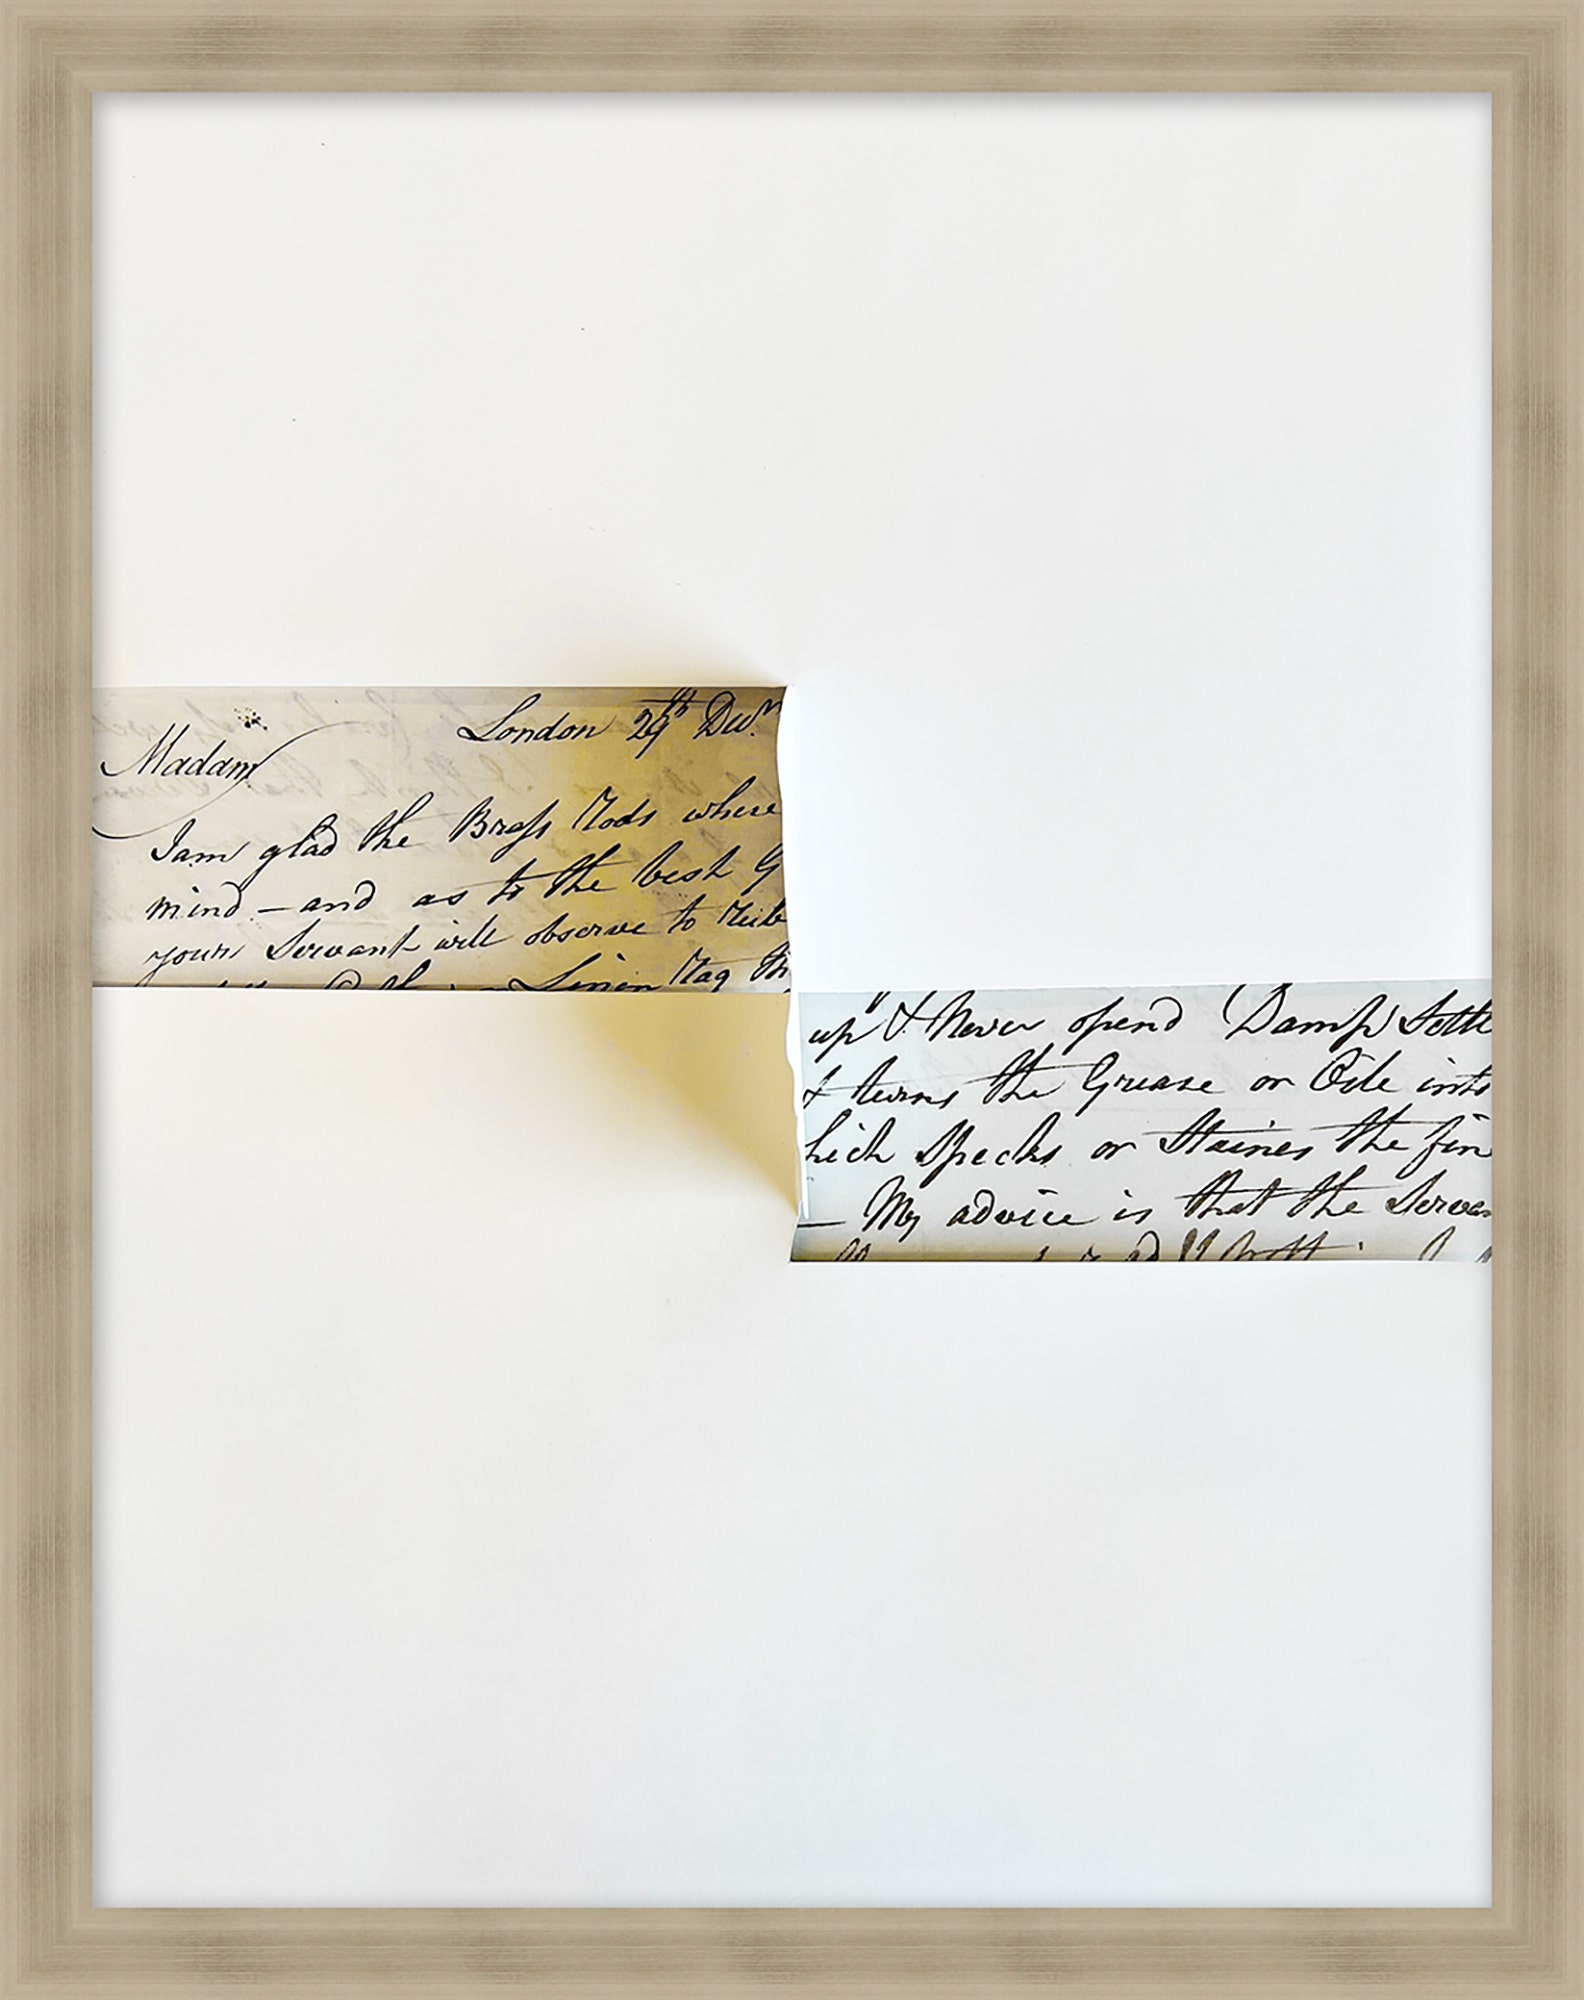 London 29th Decr.
Madam
I am glad the Brass Rods where
mind - and as to the best
your Servant will observe to
Linen Rag
up & Never spend Damp Settle
& turns the Grease or Oile into
hich Specks or Staines the fin
- My advice is that the Servan